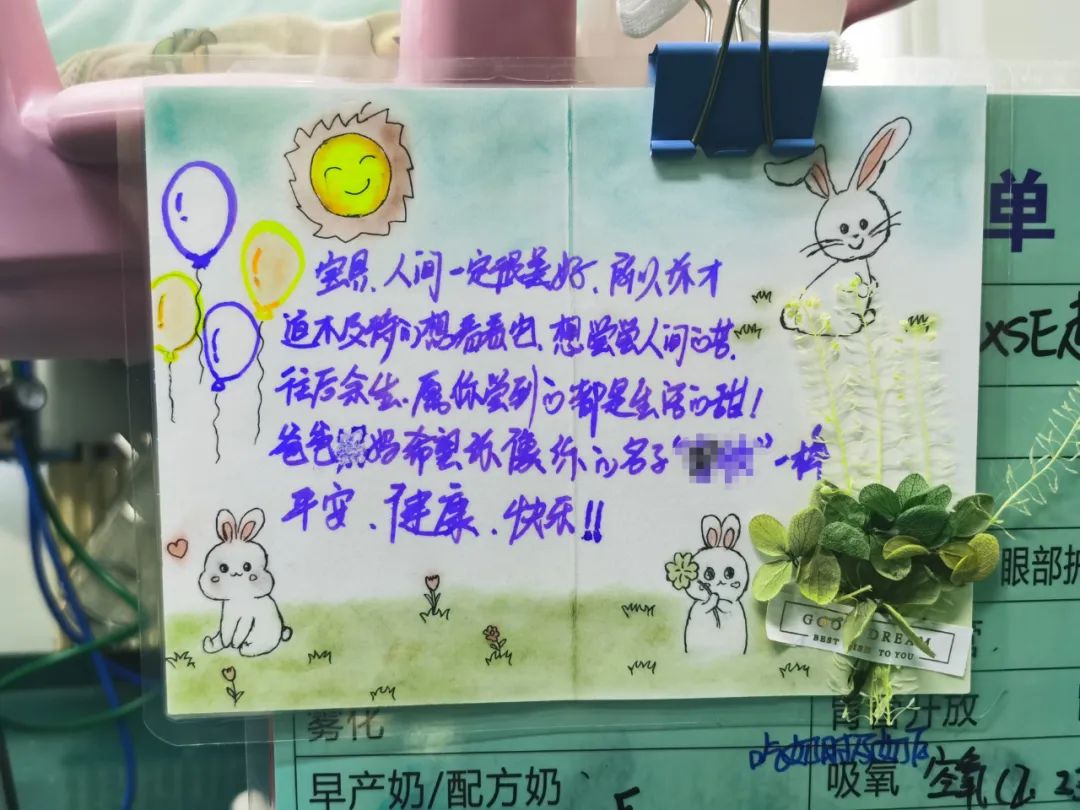 宝贝、人间一定很美好、所以你才
迫不及待的想看看它、想尝尝人间的苦、
往后余生、愿你尝到的都是生活的甜！
爸爸妈妈希望你像你的名子“ ”一样
平安、健康、快乐!!
GOOD DREAM
BEST WISH TO YOU
单
XSE
眼部
雾化
开放
早产奶/配方奶
吸氧
空氧